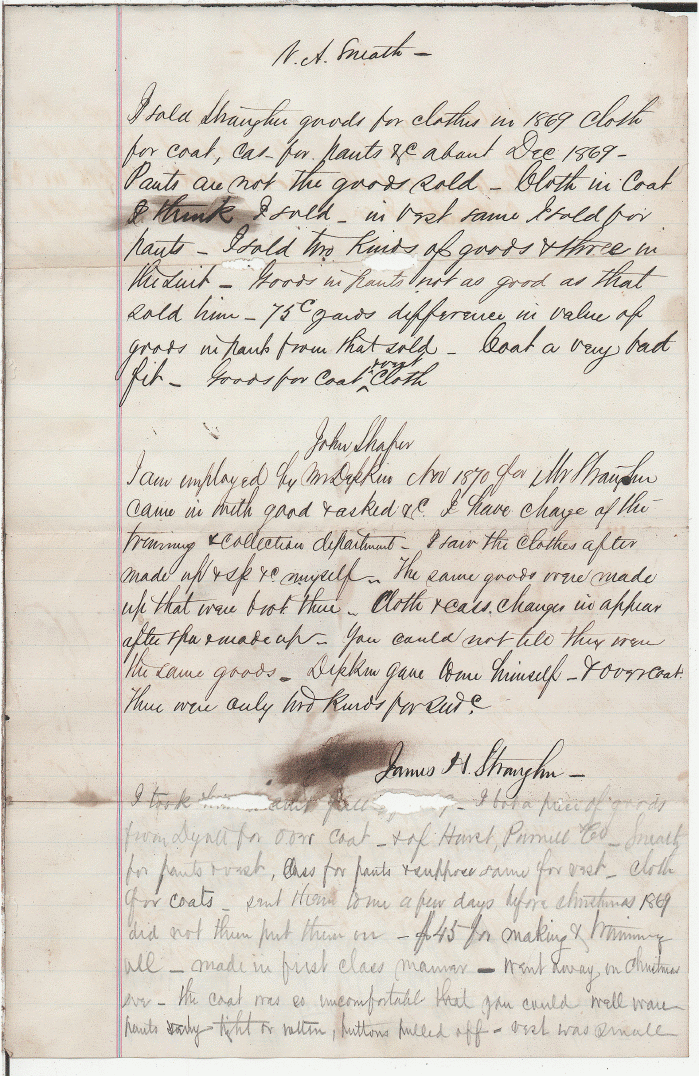 N. A. Sneath –
I sold Straughn goods for clothes in 1869 Cloth
for coat, cas. for pants &c about Dec 1869 –
Pants are not the goods sold – Cloth in Coat
I think I sold – in vest same I sold for
pants – I sold two kinds of goods & three in
the suit – Goods in pants not as good as that
sold him – 75c yards difference in value of
goods in pants from that sold – Coat a very bad
fit – Goods for coat & vest Cloth
John Shafer
I am employed by Mr Dipkin Nov 1870 for Mr Straughn
came in with good & asked &c. I have charge of the
trimming & collection department – I saw the clothes after
made up & sp &c myself – The same goods were made
up that were bo't there – Cloth & cass. changes in appear
after spu & made up – You could not tell they were
the same goods – Dipkin gave himself – & overcoat.
There were only two kinds for
James H. Straughn –
I took – I bot a piece of goods
from for over coat – & of Hurst, Purnell & Co – Sneath
for pants & vest, Cass for pants & suppose same for vest – cloth
for coats – sent them to me a few days before christmas 1869
did not then put them on – $45 for making & trimming
all – made in first class manner – went away on christmas
eve – the coat was so uncomfortable that you could well wear
pants tight or rotten, buttons pulled off – vest was small